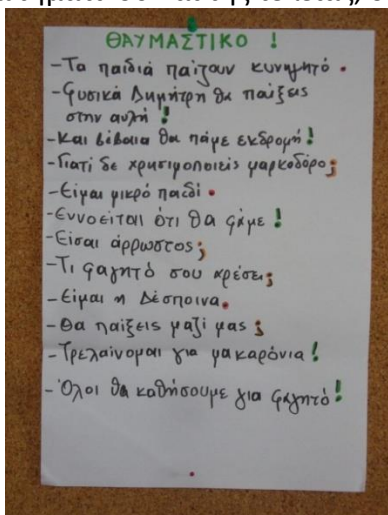 ΘΑΥΜΑΣΤΙΚΟ !
-Τα παιδιά παίζουν κυνηγητό.
-Φυσικά Δημήτρη θα παίξεις
στην αυλή !
-Και βέβαια θα πάμε εκδρομή!
-Γιατί δε χρησιμοποιείς μαρκαδόρο;
-Είμαι μικρό παιδί.
-Εννοείται ότι θα φάμε !
-Είσαι άρρωστος;
-Τι φαγητό σου αρέσει;
-Είμαι η Δέσποινα.
-Θα παίξεις μαζί μας ;
-Τρελαίνομαι για μακαρόνια!
-Όλοι θα καθήσουμε για φαγητό!